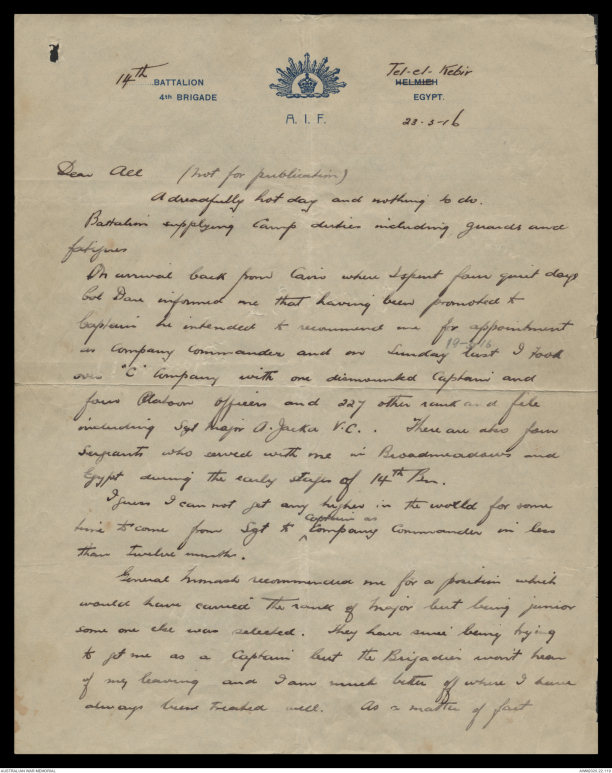 14th BATTALION
4th BRIGADE
A. I. F.
Tel-el-Kebir
HELMIEH
EGYPT.
23-3-16
Dear All (Not for publication)
A dreadfully hot day and nothing to do.
Battalion supplying Camp duties including guards and
fatigues
On arrival back from Cairo where I spent four quiet days
Col Dare informed me that having been promoted to
Captain he intended to recommend me for appointment
19-3-16
as Company Commander and on Sunday last I took
over "C" Company with one dismounted Captain and
four Platoon officers and 227 other rank and file
including Sgt Major A. Jacka V.C.. There are also four
Sergeants who served with me in Broadmeadows and
Egypt during the early stages of 14th Bn.
I guess I can not get any higher in the world for some
Captain as
time to come from Sgt to Company Commander in less
than twelve months.
General Monash recommended me for a position which
would have carried the rank of Major but being junior
some one else was selected. They have since being trying
to get me as a Captain but the Brigadier won't hear
of my leaving and I am much better off where I have
always been treated well. As a matter of fact
AUSTRALIAN WAR MEMORIAL